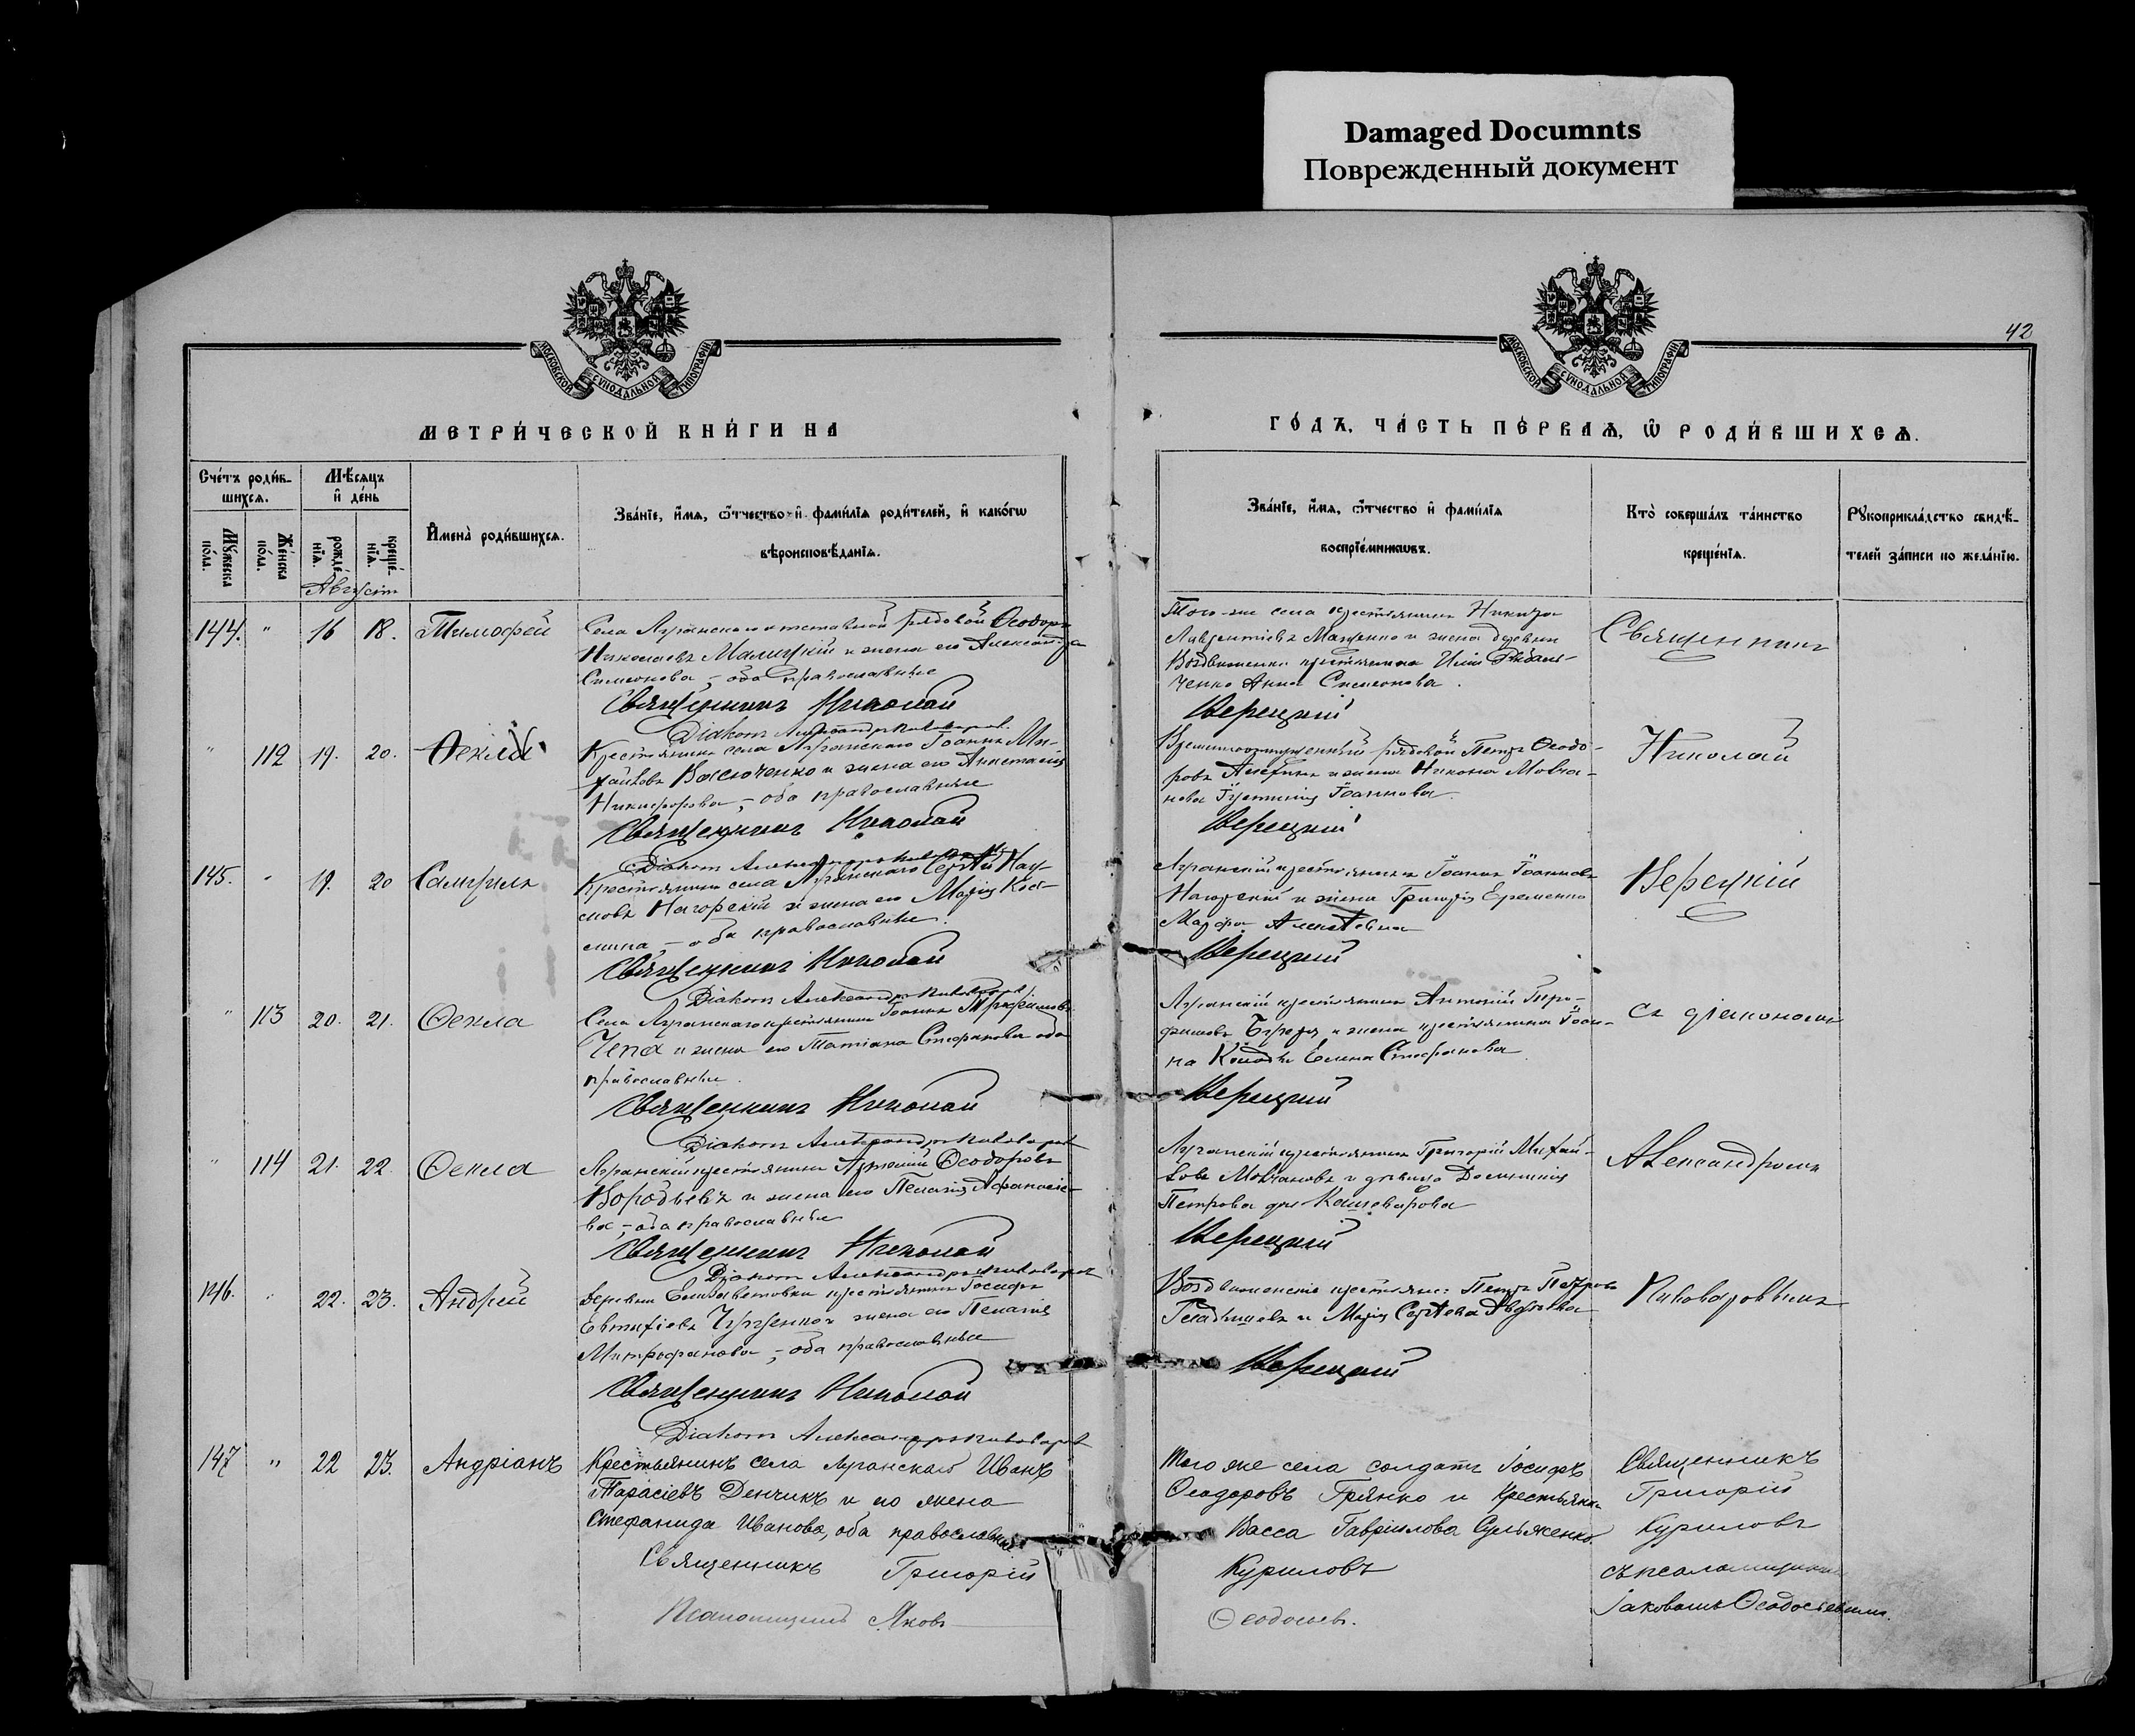 Damaged Documnts
Поврежденный документ
42
МОСКОВСКОЙ СѴНОДАЛЬНОЙ ТИПОГРАФІИ
МОСКОВСКОЙ СѴНОДАЛЬНОЙ ТИПОГРАФІИ
МЕТРИ́ЧЕСКОЙ КНИ́ГИ НА
ГО́ДЪ, ЧА́СТЬ ПЕ́РВАѦ, Ѡ РОДИ́ВШИХСѦ.
Сче́тъ роди́в-
шихсѧ.
Мꙋ́жеска
по́ла.
Же́нска
по́ла.
Мѣ́сѧцъ
и҆ де́нь
рожде́-
нїѧ.
креще́-
нїѧ.
И҆мена̀ роди́вшихсѧ.
Зва́нїе, и҆́мѧ, ѻ҆́тчество и҆ фами́лїѧ роди́телей, и҆ како́гѡ
вѣроисповѣ́данїѧ.
Зва́нїе, и҆́мѧ, ѻ҆́тчество и҆ фами́лїѧ
воспрїе́мникѡвъ.
Кто̀ соверша́лъ та́инство
креще́нїѧ.
Рꙋкоприкла́дство свидѣ́-
телей за́писи по жела́нїю.
Августъ
144. " 16 18. Тимофей
Села Луганскаго отставной рядовой Ѳеодоръ
Николаевъ Малицкій и жена его Александра
Симеонова, – оба православные
Священникъ Николай
Діаконъ Александръ Пивоваровъ
Того-же села крестьянинъ
Лаврентіевъ Мащенко и жена
крестьянина Иліи
ченко Анна Симеонова.
Верецкій
Священникъ
" 112 19. 20. Ѳекла
Крестьянинъ села Луганскаго Іоаннъ Ми-
хайловъ Василюченко и жена его Анастасія
Никифорова, – оба православные
Священникъ Николай
Діаконъ Александръ Пивоваровъ
рядовой Петръ Ѳеодо-
ровъ и жена Никона Молча-
нова Іоаннова.
Верецкій
Николай
145. " 19. 20
Крестьянинъ села Луганскаго Сергѣй Нау-
мовъ Нагорскій и жена его Марія Кос-
мина, – оба православные.
Священникъ Николай
Діаконъ Александръ Пивоваровъ
Луганскій крестьянинъ Іоаннъ Іоанновъ
Нагорскій и жена Григорія Еременко
Марфа Алексѣевна
Верецкій
Верецкій
" 113 20. 21. Ѳекла
Села Луганскаго крестьянинъ Іоаннъ Трофимовъ
Чепа и жена его Татіана Стефанова оба
православные.
Священникъ Николай
Діаконъ Александръ Пивоваровъ
Луганскій крестьянинъ Антоній Тро-
фимовъ и жена крестьянина Іоан-
на Елена Стефанова
Верецкій
съ діакономъ
" 114 21. 22. Ѳекла
Луганскій крестьянинъ Ѳеодоровъ
Воробьевъ и жена его Пелагія Афанасіе-
ва, – оба православные
Священникъ Николай
Діаконъ Александръ Пивоваровъ
Луганскій крестьянинъ Григорій Михай-
ловъ Молчановъ и дѣвица Домникія
Петрова Кашеварова
Верецкій
Александромъ
146. " 22. 23. Андрей
Деревни Елизаветовки крестьянинъ Іосифъ
Евтихіевъ и жена его Пелагія
Митрофанова, – оба православные
Священникъ Николай
Діаконъ Александръ Пивоваровъ
крестьян: Петръ Петровъ
Гладышевъ и Марія Сергѣева
Верецкій
Пивоваровымъ
147 " 22 23. Андріанъ
Крестьянинъ села Луганскаго Иванъ
Тарасіевъ Денчикъ и его жена
Стефанида Иванова, оба православные
Священникъ Григорій
Псаломщикъ Яковъ
Того же села солдатъ Іосифъ
Ѳеодоровъ Грянко и крестьянка
Васса Гавріилова Сульженко.
Куриловъ
Ѳеодосьев.
Священникъ
Григорій
Куриловъ
съ псаломщикомъ
Іаковомъ Ѳеодосьевымъ.